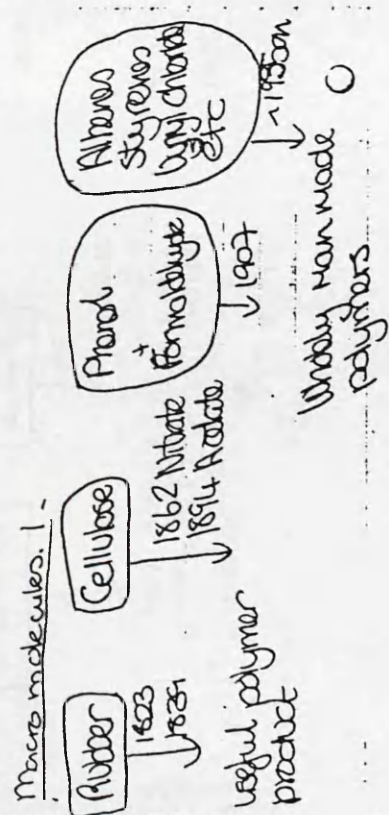 Macromolecules. 1 -
Rubber
1823
1839
useful polymer
product
Cellulose
1862 Nitrate
1894 Acetate
Phenol
+
Formaldehyde
1907
Alkenes
Styrenes
Vinyl chloride
etc
~1930on
Wholly man made
polymers